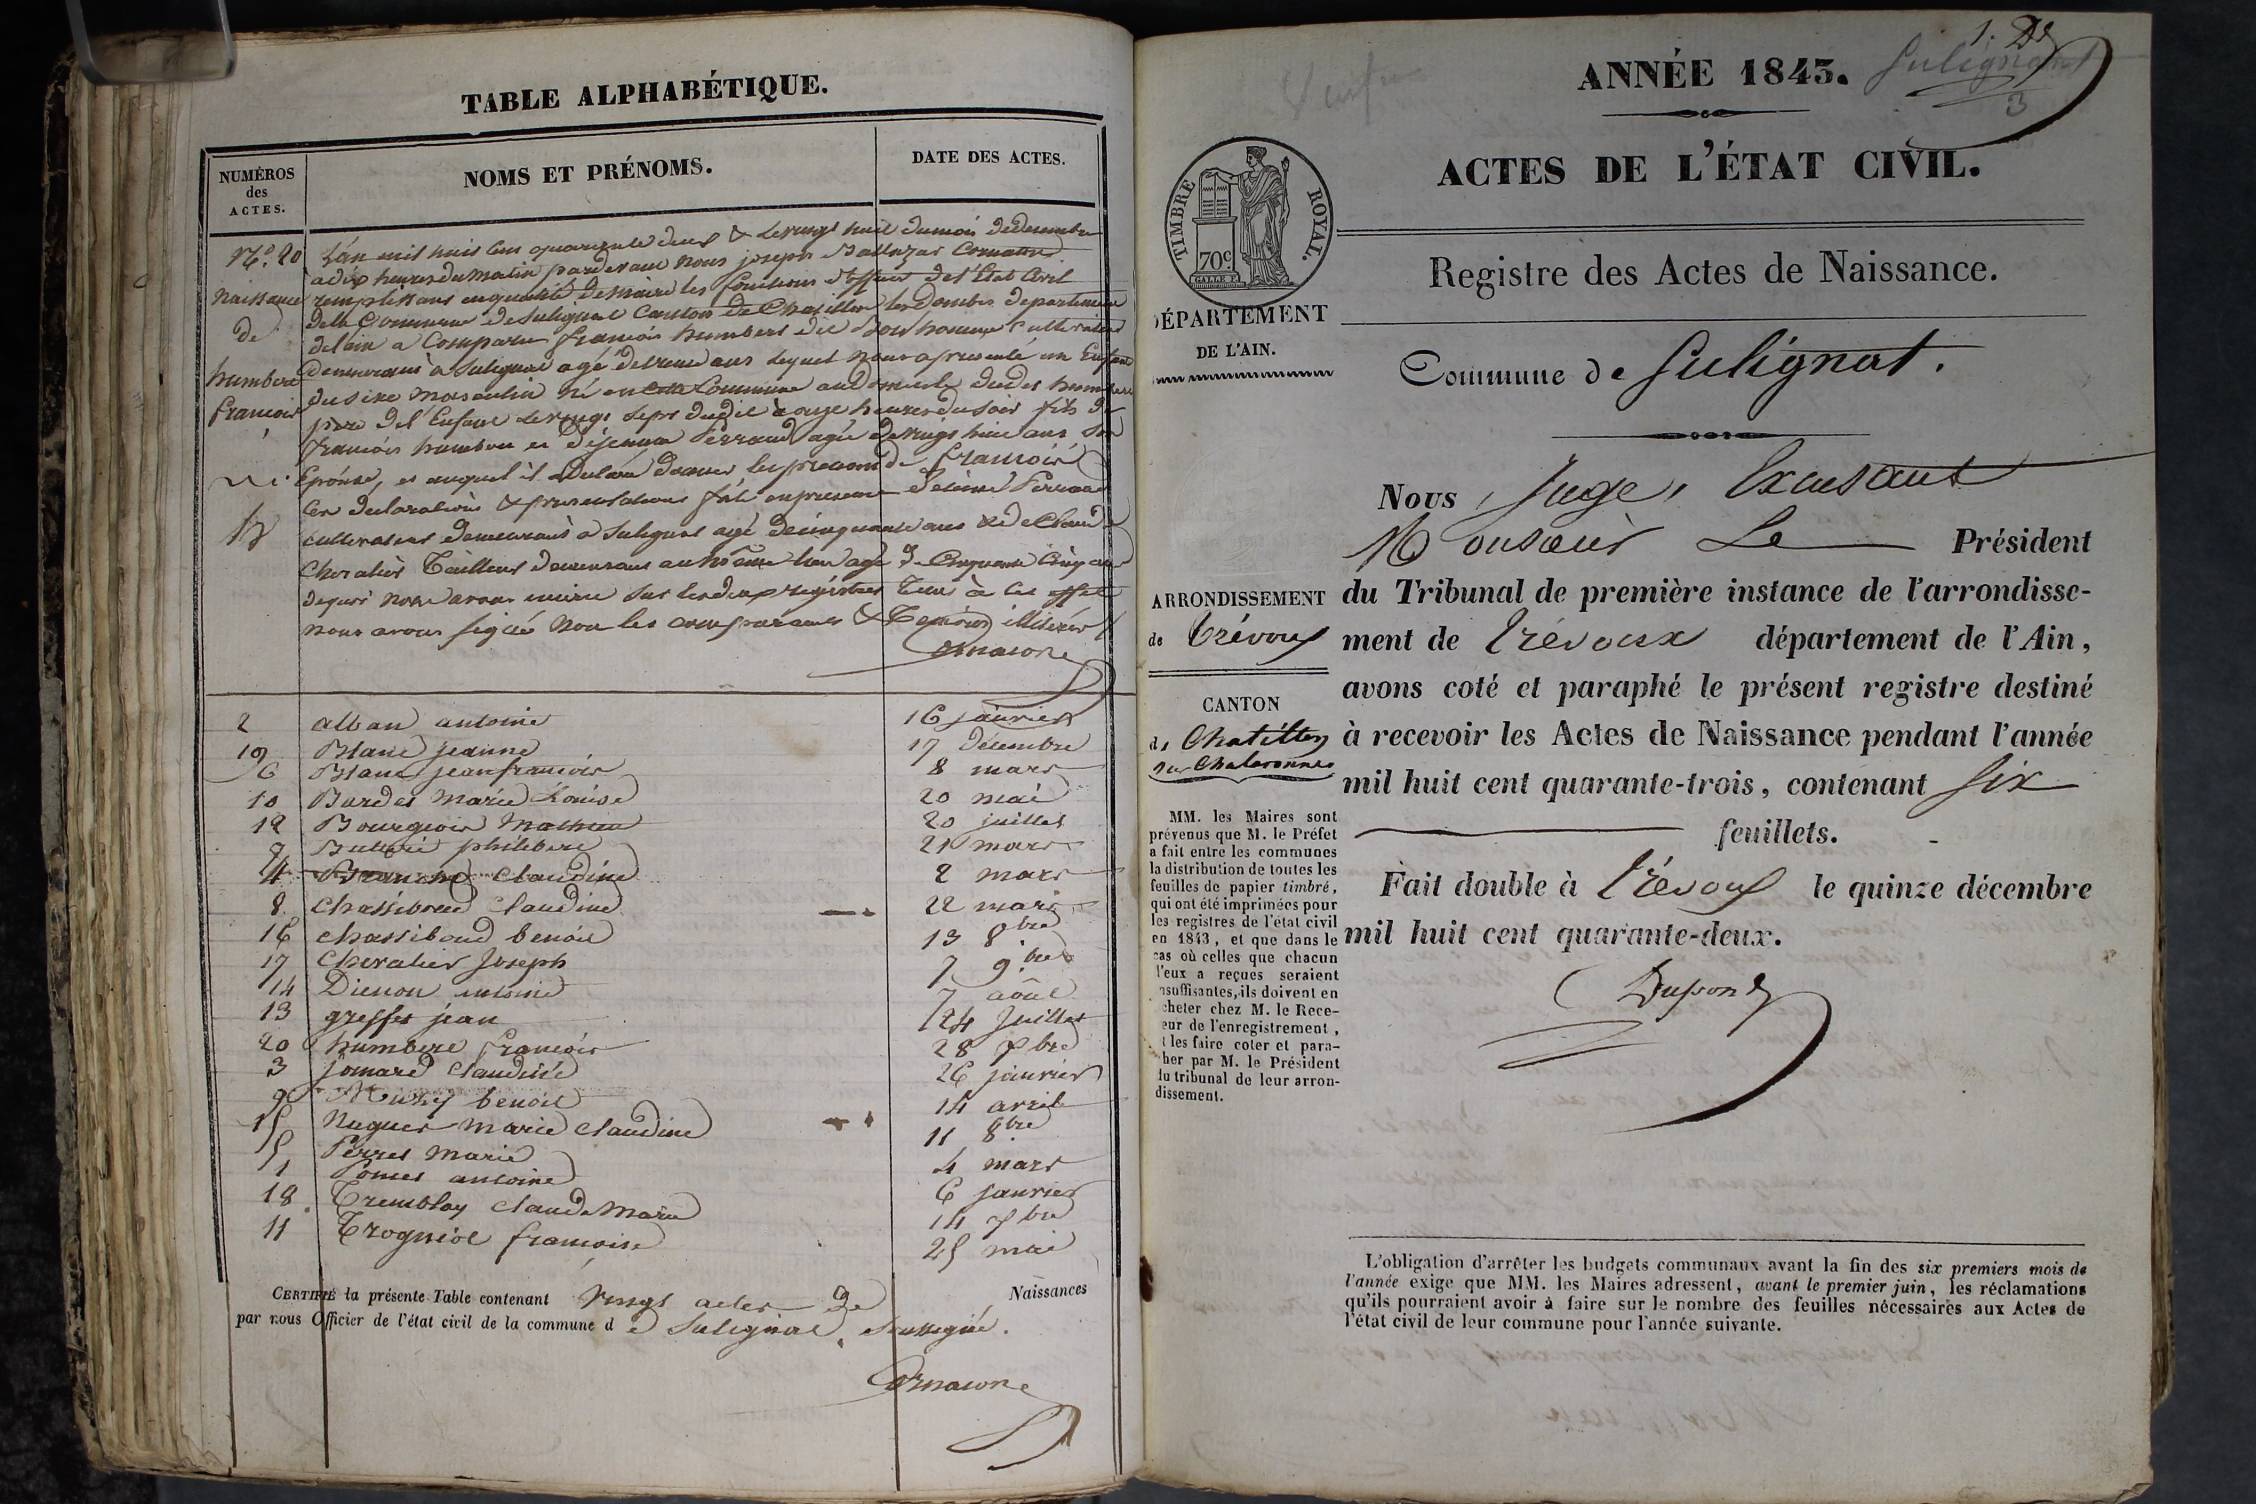 TABLE ALPHABÉTIQUE.
NUMÉROS
des
ACTES.
NOMS ET PRÉNOMS.
DATE DES ACTES.
N.° 20
naissance
de
humbert
francois
L'an mil huit cent quarante deux & le vingt huit du mois de decembre
a dix heures du matin pardevant nous joseph Baltazar
remplissant en qualité de maire les fonctions d'officier de l'Etat Civil
de la Commune de Sulignat Canton de Chatillon les Dombes departement
de l'ain a Comparu francois humbert cultivateur
demeurant à Sulignat agé de trente ans lequel nous a presenté un Enfant
du sexe masculin né en cette Commune au domicile dudit humbert
pere de l'Enfant le vingt sept dudit à onze heures du soir fils de
francois humbert et de jeanne Perraud agée de vingt huit ans son
Epouse, et auquel il a declaré donner le prenom de francois
Ces declarations & presentations fait en presence d'etienne Perraud
cultivateur demeurant a Sulignat agé de cinquante ans & de Claude
Chevalier Tailleur demeurant au même lieu agé de Cinquante Cinq ans
de quoi nous avons inscrit sur les deux registres tenu à cet effet
nous avons signé non les comparants & Temoins illiterés
2 alban antoine 16 janvier
19 Blanc jeanne 17 décembre
6 Blanc jean francois 8 mars
10 Bardet Marie Louise 20 mai
12 Bourgeois Mathieu 20 juillet
7 philibert 21 mars
4 claudine 2 mars
8 Chassiboud Claudine 22 mars
16 chassiboud benoit 13 8bre
17 Chevalier Joseph 7 9bre
14 antoine 7 août
13 greffet jean 24 Juillet
20 humbert francois 28 Xbre
3 jomard Claudine 26 janvier
9 benoit 14 avril
15 Nugues marie claudine 11 8bre
5 Perret Marie 4 mars
1 antoine 6 janvier
18 Tremblay claude Marie 14
11 Trogniol francoise 25 mai
CERTIFIÉ la présente Table contenant vingt actes de Naissances
par nous Officier de l'état civil de la commune de Sulignat, Soussigné.
1.
Sulignat
3
ANNÉE 1843.
ACTES DE L'ÉTAT CIVIL.
TIMBRE ROYAL.
70c
Registre des Actes de Naissance.
DÉPARTEMENT
DE L'AIN.
Commune de Sulignat.
Nous, Juge, Excusant
Monsieur Le Président
du Tribunal de première instance de l'arrondisse-
ment de Trévoux département de l'Ain,
avons coté et paraphé le présent registre destiné
à recevoir les Actes de Naissance pendant l'année
mil huit cent quarante-trois, contenant Six
feuillets.
Fait double à Trévoux le quinze décembre
mil huit cent quarante-deux.
ARRONDISSEMENT
de Trévoux
CANTON
de Chatillon
sur Chalaronne
MM. les Maires sont
prévenus que M. le Préfet
a fait entre les communes
la distribution de toutes les
feuilles de papier timbré,
qui ont été imprimées pour
les registres de l'état civil
en 1843, et que dans le
cas où celles que chacun
d'eux a reçues seraient
nsuffisantes, ils doivent en
cheter chez M. le Rece-
eur de l'enregistrement,
t les faire coter et para-
her par M. le Président
du tribunal de leur arron-
dissement.
L'obligation d'arrêter les budgets communaux avant la fin des six premiers mois de
l'année exige que MM. les Maires adressent, avant le premier juin, les réclamations
qu'ils pourraient avoir à faire sur le nombre des feuilles nécessaires aux Actes de
l'état civil de leur commune pour l'année suivante.